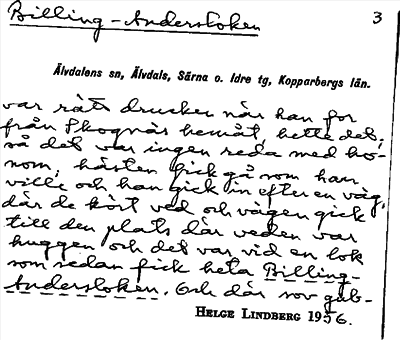 Billing-Andersloken
3
Älvdalens sn, Älvdals, Särna o. Idre tg, Kopparbergs län.
var rätt drucken när han for
från Skognäs hemåt, hette det,
så det var ingen reda med ho-
nom, hästen fick gå som han
ville och han gick in efter en väg,
där de kört ved och vägen gick
till den plats där veden var
huggen och det var vid en lok
som sedan fick heta Billing-
Andersloken. Och där sov gub-
HELGE LINDBERG 1956.